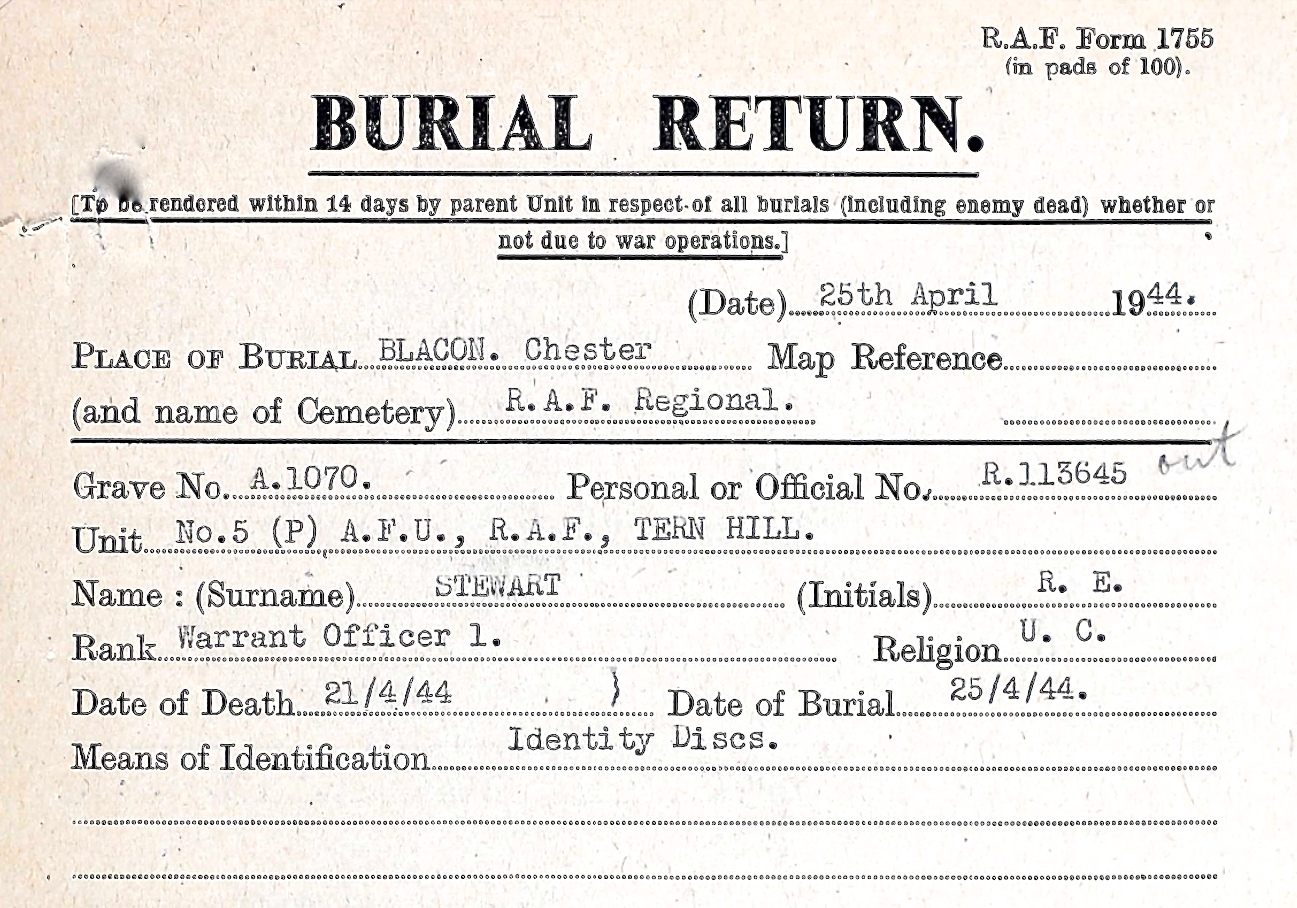 R.A.F. Form 1755
(in pads of 100).
BURIAL RETURN.
[To be rendered within 14 days by parent Unit in respect of all burials (including enemy dead) whether or
not due to war operations.]
(Date) 25th April 1944.
PLACE OF BURIAL BLACON. Chester Map Reference
(and name of Cemetery) R.A.F. Regional.
Grave No. A.1070. Personal or Official No. R.113645 out
Unit No.5 (P) A.F.U., R.A.F., TERN HILL.
Name : (Surname) STEWART (Initials) R. E.
Rank Warrant Officer 1. Religion U. C.
Date of Death 21/4/44 } Date of Burial 25/4/44.
Means of Identification Identity Discs.